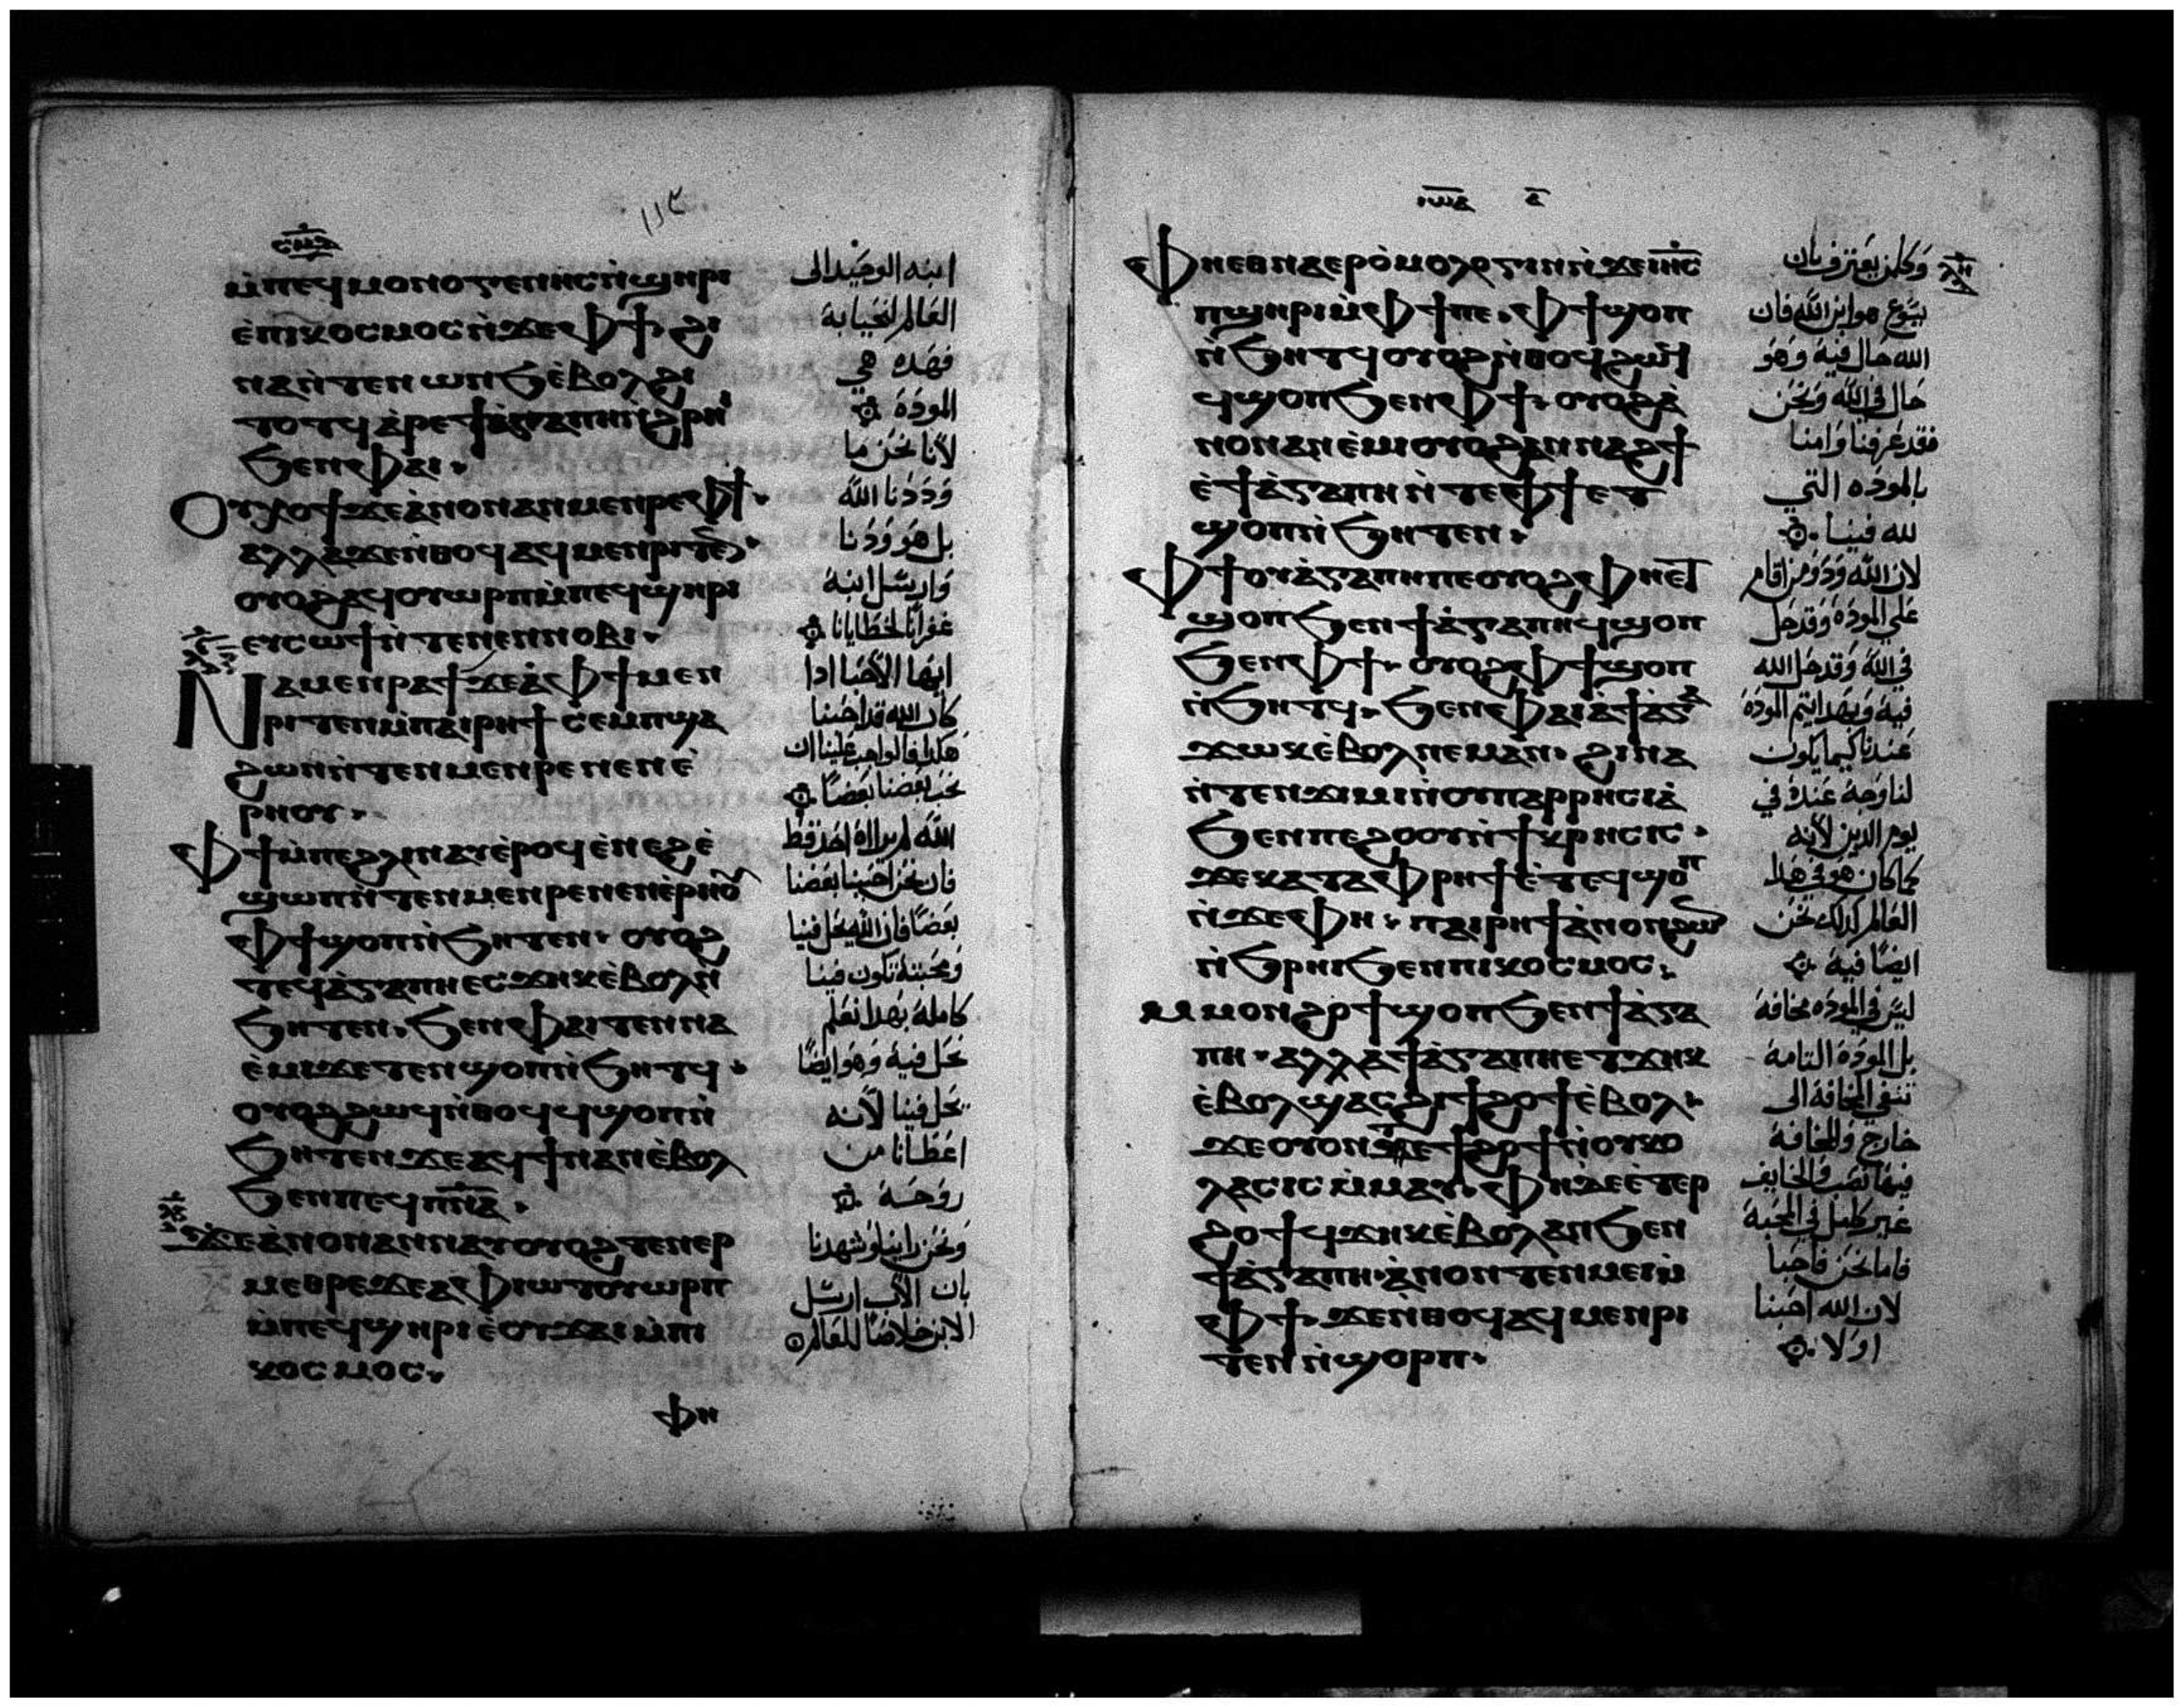 ⲙ̀ⲡⲉϥⲙⲟⲛⲟⲅⲉⲛⲏⲥ ⲛ̀ϣⲏⲣⲓ
ⲉ̀ⲡⲓⲕⲟⲥⲙⲟⲥ ⲛ̀ϫⲉⲫϯ· ϩⲓ
ⲛⲁ ⲛ̀ⲧⲉⲛⲱⲛϧ ⲉ̀ⲃⲟⲗ ϩⲓ
ⲧⲟⲧϥ ⲁ̀ⲣⲉ ϯⲁ̀ⲅⲁⲡⲏ ⲛ̀ϩⲣⲏⲓ
ϧⲉⲛⲫⲁⲓ·
Ⲟⲩⲭⲟϯ ϫⲉ ⲁ̀ⲛⲟⲛ ⲁⲛⲙⲉⲛⲣⲉ ⲫϯ·
ⲁⲗⲗⲁ ϫⲉ ⲛ̀ⲑⲟϥ ⲁϥⲙⲉⲛⲣⲓⲧⲉⲛ·
ⲟⲩⲟϩ ⲁϥⲟⲩⲱⲣⲡ ⲙ̀ⲡⲉϥϣⲏⲣⲓ
ⲉⲩⲥⲱϯ ⲛ̀ⲧⲉ ⲛⲉⲛⲛⲟⲃⲓ·
Ⲛⲁⲙⲉⲛⲣⲁϯ ϫⲉ ⲁ̀ⲫϯ ⲙⲉⲛ
ⲣⲓⲧⲉⲛ ⲙ̀ⲡⲁⲓⲣⲏϯ ⲥⲉⲙⲡϣⲁ
ϩⲱⲛ ⲛ̀ⲧⲉⲛⲙⲉⲛⲣⲉ ⲛⲉⲛⲉ̀
ⲣⲏⲟⲩ·
Ⲫϯ ⲙ̀ⲡⲉ ϩⲗⲓ ⲛⲁⲩ ⲉ̀ⲣⲟϥ ⲉ̀ⲛⲉϩ ⲉ̀
ϣⲱⲡ ⲛ̀ⲧⲉⲛⲙⲉⲛⲣⲉ ⲛⲉⲛⲉ̀ⲣⲏⲟⲩ
ⲫϯ ϣⲟⲡ ⲛ̀ϧⲏⲧⲉⲛ· ⲟⲩⲟϩ
ⲧⲉϥⲁ̀ⲅⲁⲡⲏ ⲉⲥϫⲏⲕ ⲉ̀ⲃⲟⲗ ⲛ̀
ϧⲏⲧⲉⲛ· ϧⲉⲛⲫⲁⲓ ⲧⲉⲛⲛⲁ
ⲉ̀ⲙⲓ ϫⲉ ⲧⲉⲛϣⲟⲡ ⲛ̀ϧⲏⲧϥ·
ⲟⲩⲟϩ ϩⲱϥ ⲛ̀ⲑⲟϥ ϥϣⲟⲡ ⲛ̀
ϧⲏⲧⲉⲛ ϫⲉ ⲁϥϯ ⲛⲁⲛ ⲉ̀ⲃⲟⲗ
ϧⲉⲛⲡⲉϥⲡ̅ⲛ̅ⲁ̅·
ϫⲉ ⲁ̀ⲛⲟⲛ ⲁⲛⲛⲁⲩ ⲟⲩⲟϩ ⲧⲉⲛⲉⲣ
ⲙⲉⲑⲣⲉ ϫⲉ ⲁ̀ⲫⲓⲱⲧ ⲟⲩⲱⲣⲡ
ⲙ̀ⲡⲉϥϣⲏⲣⲓ ⲉ̀ⲟⲩϫⲁⲓ ⲙ̀ⲡⲓ
ⲕⲟⲥⲙⲟⲥ·
ⲫⲏ
ابنه الوحيد الى
العالم لنحيا به
فهده هي
المودة
لأنا نحن ما
وددنا الله
بل هو ودنا
وارسل ابنه
غفرانا لخطايانا
ايها الأحبا ادا
كان الله قد احبنا
هكدا فالواجب علينا ان
نحب بعضنا بعضا
الله لم يراه احد قط
فان نحن احببنا بعضنا
بعضا فان الله يحل فينا
ومحبته تكون فينا
كاملة بهدا نعلم
نحل فيه وهو ايضا
يحل فينا لأنه
اعطانا من
روحه
ونحن راينا وشهدنا
بان الأب ارسل
الابن خلاصا للعالم
Ⲫⲏⲉⲑⲛⲁⲉⲣⲟ̀ⲙⲟⲗⲟⲅⲓⲛ ⲛ̀ϫⲉ ⲓⲏ̅ⲥ̅
ⲡϣⲏⲣⲓ ⲙ̀ⲫϯ ⲡⲉ· ⲫϯ ϣⲟⲡ
ⲛ̀ϧⲏⲧϥ ⲟⲩⲟϩ ⲛ̀ⲑⲟϥ ϩⲱϥ
ϥϣⲟⲡ ϧⲉⲛⲫϯ· ⲟⲩⲟϩ ⲁ̀
ⲛⲟⲛ ⲁⲛⲉ̀ⲙⲓ ⲟⲩⲟϩ ⲁⲛⲛⲁϩϯ
ⲉ̀ϯⲁ̀ⲅⲁⲡⲏ ⲛ̀ⲧⲉ ⲫϯ ⲉⲧ
ϣⲟⲡ ⲛ̀ϧⲏⲧⲉⲛ·
Ⲫϯ ⲟⲩⲁ̀ⲅⲁⲡⲏ ⲡⲉ ⲟⲩⲟϩ ⲫⲏⲉⲧ
ϣⲟⲡ ϧⲉⲛ ϯⲁ̀ⲅⲁⲡⲏ ϥϣⲟⲡ
ϧⲉⲛⲫϯ· ⲟⲩⲟϩ ⲫϯ ϣⲟⲡ
ⲛ̀ϧⲏⲧϥ· ϧⲉⲛⲫⲁⲓ ⲁ̀ϯⲁ̀ⲅⲁ
ϫⲱⲕ ⲉ̀ⲃⲟⲗ ⲛⲉⲙⲁⲛ· ϩⲓⲛⲁ
ⲛ̀ⲧⲉⲛϫⲓⲙⲓ ⲛ̀ⲟⲩⲡⲁⲣⲣⲏⲥⲓⲁ̀
ϧⲉⲛ ⲡⲉϩⲟⲟⲩ ⲛ̀ϯⲕⲣⲏⲥⲓⲥ·
ϫⲉ ⲕⲁⲧⲁ ⲫⲣⲏϯ ⲉ̀ⲧⲉϥϣⲟⲡ
ⲛ̀ϫⲉ ⲫⲏ· ⲡⲁⲓⲣⲏϯ ⲁ̀ⲛⲟⲛ ϩⲱⲛ
ⲛ̀ϧⲣⲏⲓ ϧⲉⲛ ⲡⲓⲕⲟⲥⲙⲟⲥ·
ⲙⲙⲟⲛ ϩⲟϯ ϣⲟⲡ ϧⲉⲛ ϯⲁ̀ⲅⲁ
ⲡⲏ· ⲁⲗⲗⲁ ϯⲁ̀ⲅⲁⲡⲏ ⲉⲧϫⲏⲕ
ⲉ̀ⲃⲟⲗ ϣⲁⲥϩⲓ ϯϩⲟϯ ⲉ̀ⲃⲟⲗ·
ϫⲉ ⲟⲩⲟⲛⲧⲉ ϯϩⲟϯ ⲛ̀ⲟⲩⲕⲟ
ⲗⲁⲥⲓⲥ ⲙ̀ⲙⲁⲩ· ⲫⲏ ⲇⲉ ⲉ̀ⲧⲉⲣ
ϩⲟϯ ϥϫⲏⲕ ⲉ̀ⲃⲟⲗ ⲁⲛ ϧⲉⲛ
ϯⲁ̀ⲅⲁⲡⲏ· ⲁ̀ⲛⲟⲛ ⲧⲉⲛⲙⲉⲓ ⲙ̀
ⲫϯ· ϫⲉ ⲛ̀ⲑⲟϥ ⲁϥⲙⲉⲛⲣⲓ
ⲧⲉⲛ ⲛ̀ϣⲟⲣⲡ·
وكلمن يعترف بان
يسوع هو ابن الله فان
الله حال فيه وهو
حال في الله ونحن
فقد عرفنا وامنا
بالموده التي
لله فينا
لان الله ود ومن اقام
على الموده وقد حل
في الله وقد حل الله
فيه وبهدا تتم المودة
عندنا كيما يكون
لنا وجه عنده في
يوم الدين لأنه
كما كان هو في هدا
العالم كدلك نحن
ايضا فيه
ليس في الموده مخافة
بل المودة التامة
تنفي المخافة الى
خارج والمخافة
فيها نصب والخايف
غير كامل في المحبة
فاما نحن فاحبا
لان الله احبنا
اولا